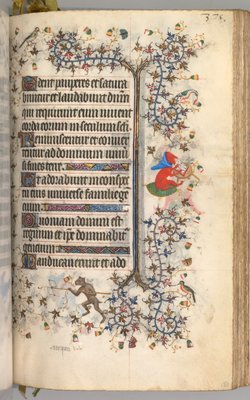 Edent pauperes et satura
buntur et laudabunt dnm̄
qui requirunt eum vivent
corda eorum in seculum scti
Reminiscentur et conver
tentur ad dominum univ̄
si fines terre
Et adorabunt in conspec
tu eius universe familie ge
cium
Quoniam domini est
regnum et ip̄e dominabit̄
gencium
Manducaverunt et ado